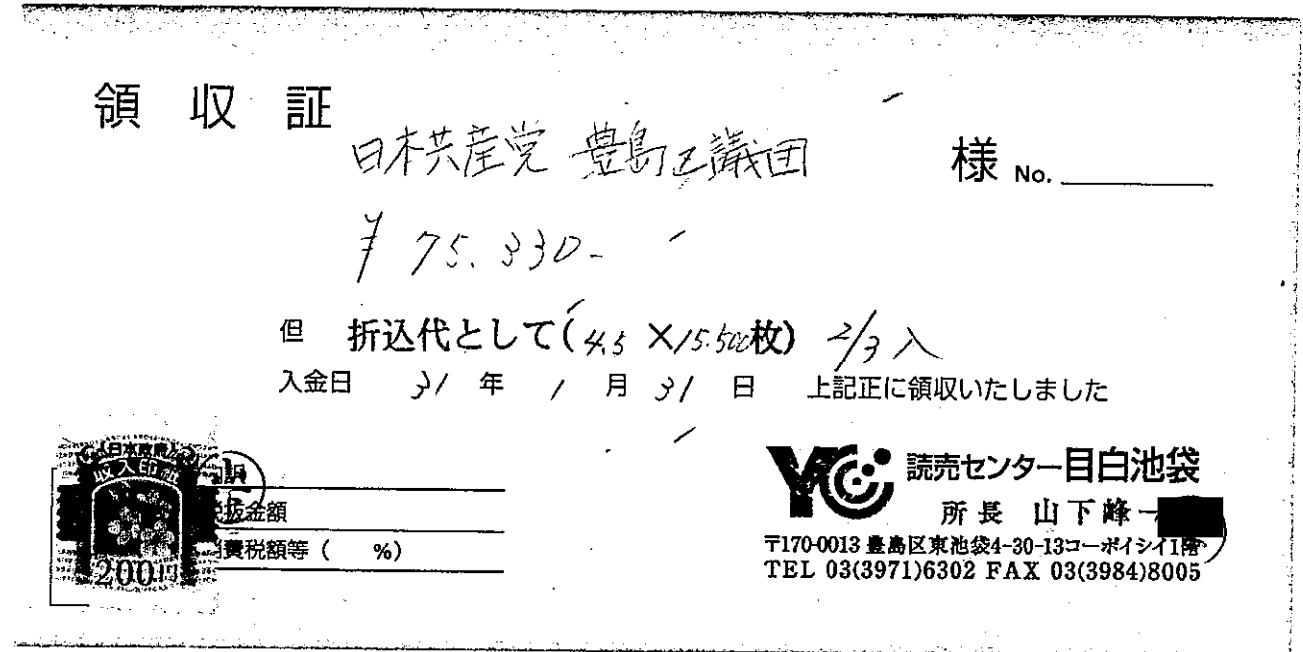 領収証
日本共産党 豊島区議団 様 No.
¥ 75.330-
但 折込代として(4.5 ×15.500枚) 2/3 入
入金日 31 年 1 月 31 日 上記正に領収いたしました
日本政府
収入印紙
200円
税抜金額
消費税額等( %)
YC 読売センター目白池袋
所長 山下峰一
〒170-0013 豊島区東池袋4-30-13コーポイシイ1階
TEL 03(3971)6302 FAX 03(3984)8005